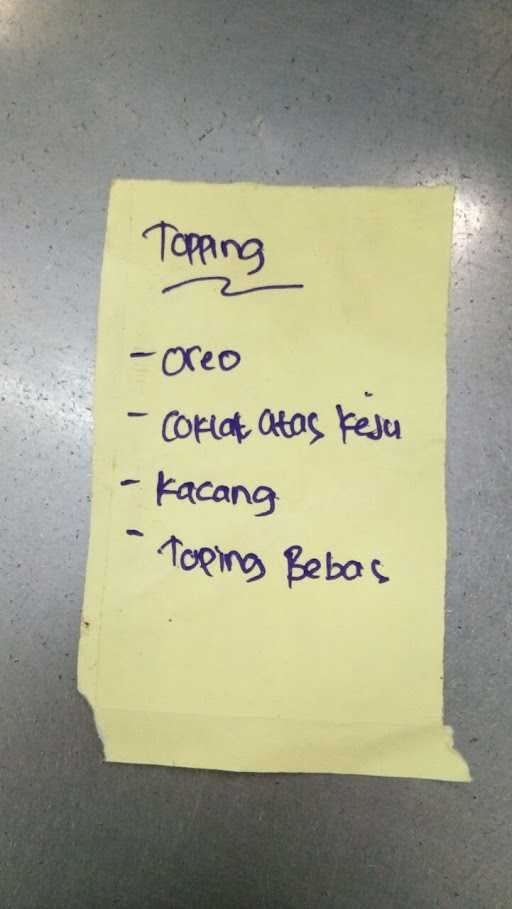 Topping
- Oreo
- Coklat atas keju
- Kacang
- Toping Bebas